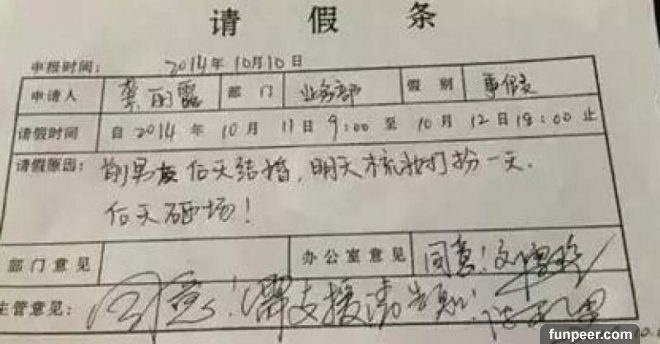 请假条
申报时间: 2014年10月10日
申请人 龚丽露 部门 业务部 假别 事假
请假时间 自2014年10月11日9:00至10月12日18:00止
请假原因: 前男友后天结婚,明天梳妆打扮一天.
后天砸场!
部门意见 办公室意见 同意!
主管意见: 同意!需支援请告知!
funpeer.com